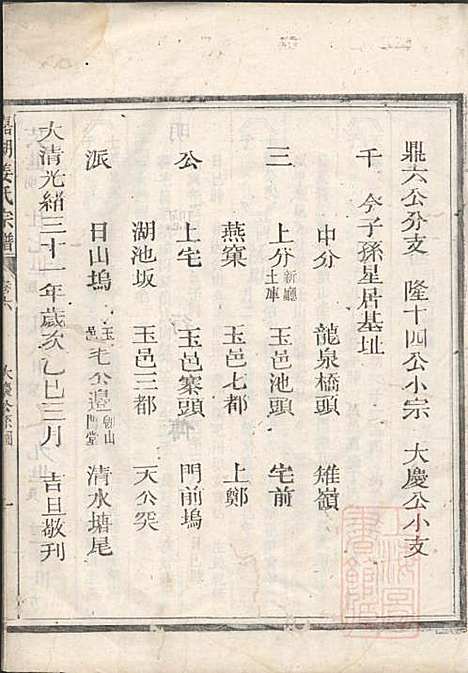 鼎六公分支 隆十四公小宗 大慶公小支
千 今子孫星居基址
申分 龍泉橋頭 雉嶺
三 上分 新廳 土庫 玉邑池頭 宅前
燕窠 玉邑七都 上鄭
公 上宅 玉邑寀頭 門前塢
湖池坂 玉邑三都 天公突
派 日山塢 玉邑 毛公邉 門堂 清水塘尾
大清光緒三十一年歲次乙巳三月 吉旦敬刊
姜氏宗譜 卷六 大慶公派圖 一
上海圖書館藏